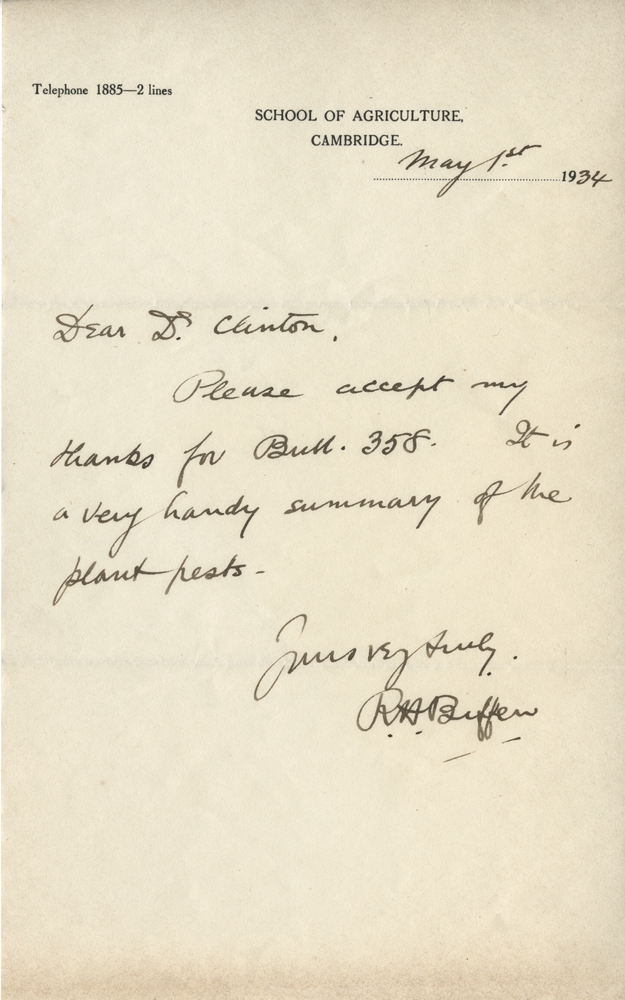 Telephone 1885—2 lines
SCHOOL OF AGRICULTURE,
CAMBRIDGE.
May 1st 1934
Dear Dr. Clinton,
Please accept my
thanks for Bull. 358. It is
a very handy summary of the
plant pests -
Yours very truly.
R H Biffen